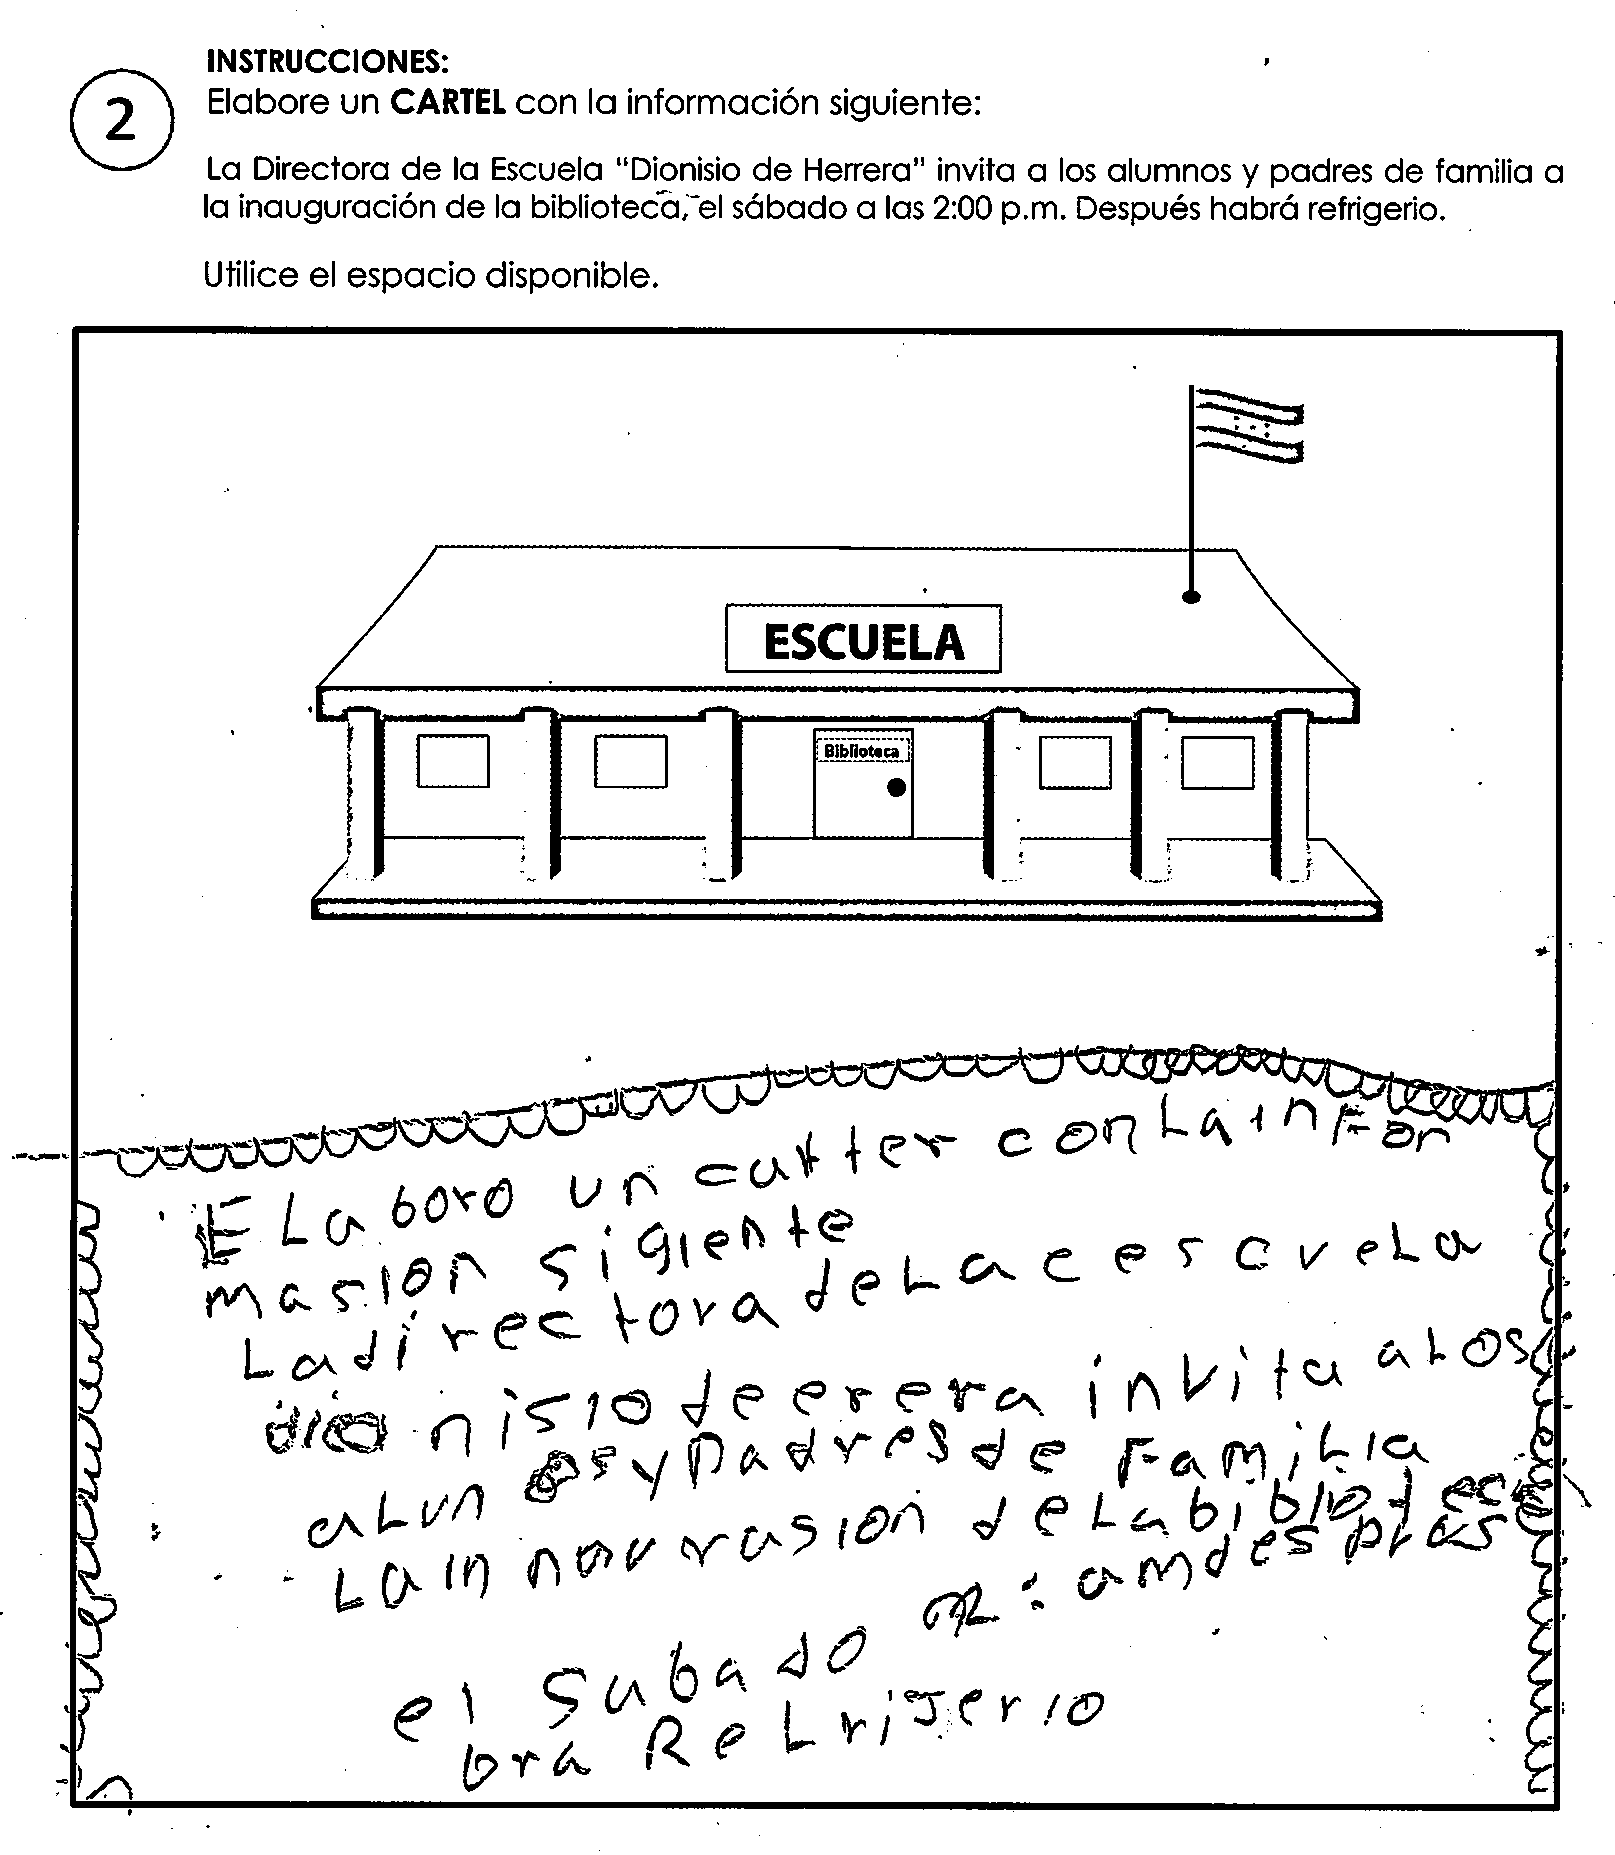 INSTRUCCIONES:
2
Elabore un CARTEL con la información siguiente:
La Directora de la Escuela "Dionisio de Herrera" invita a los alumnos y padres de familia a
la inauguración de la biblioteca, el sábado a las 2:00 p.m. Después habrá refrigerio.
Utilice el espacio disponible.
ESCUELA
Biblioteca
ELaboro un carter con La infor
masion sigiente
La directora de La c escueLa
dionisio de erera invita a Los
aLun os y Padres de FamiLia
La in naurasion de La bibliotec
el Sabado 2: am des pues
bra ReLrijerio